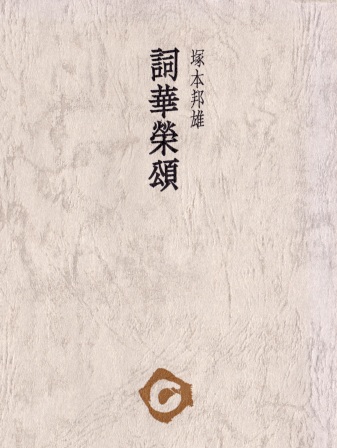 塚本邦雄
詞華榮頌